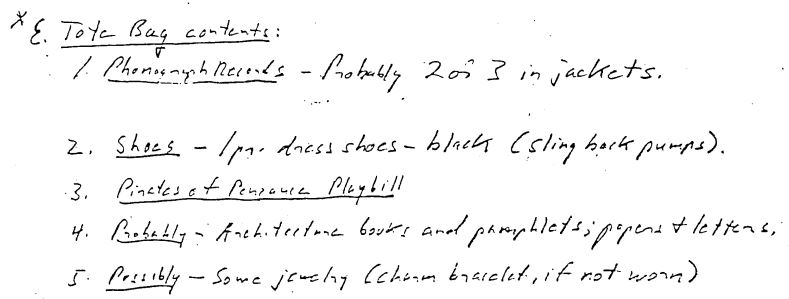 * E. Tote Bag contents:
1. Phonograph Records - Probably 2 or 3 in jackets.
2. Shoes - 1 pr. dress shoes - black (sling back pumps).
3. Pirates of Penzance Playbill
4. Probably - Architecture books and pamphlets; papers + letters;
5. Possibly - Some jewelry (charm bracelet, if not worn)